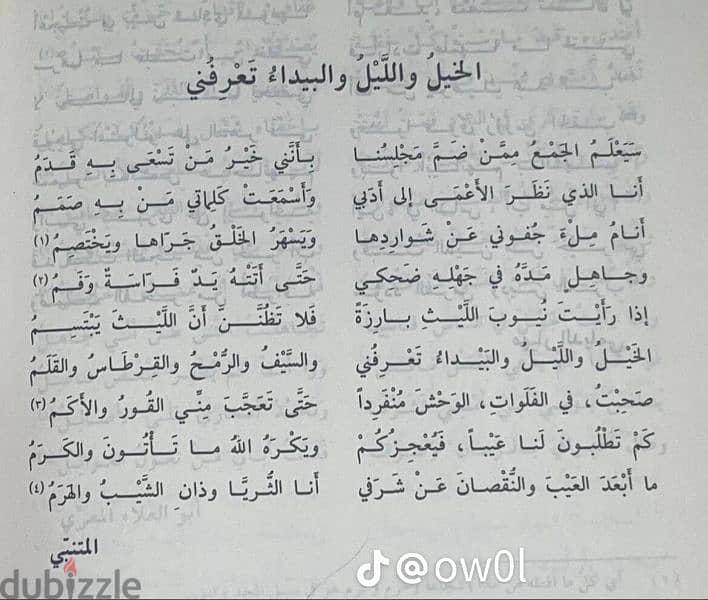 الخيلُ واللَّيْلُ والبيداءُ تَعْرِفُني
سَيَعْلَمُ الجَمْعُ مِمَّنْ ضَمَّ مَجْلِسُنا بِأَنَّني خَيْرُ مَنْ تَسْعَى بِهِ قَدَمُ
أَنا الذي نَظَرَ الأَعْمَى إلى أَدَبي وَأَسْمَعَتْ كَلِماتي مَنْ بِهِ صَمَمُ
أَنامُ مِلْءَ جُفوني عَنْ شَوارِدِها وَيَسْهَرُ الخَلْقُ جَرَاها ويَخْتَصِمُ (١)
وجاهِلٍ مَدَّهُ في جَهْلِهِ ضَحِكي حَتَّى أَتَتْهُ يَدٌ فَرّاسَةٌ وَفَمُ (٢)
إذا رَأَيْتَ نُيوبَ اللَّيْثِ بارِزَةً فَلا تَظُنَّنَّ أَنَّ اللَّيْثَ يَبْتَسِمُ
الخَيْلُ واللَّيْلُ والبَيْداءُ تَعْرِفُني والسَّيْفُ والرُّمْحُ والقِرْطاسُ والقَلَمُ
صَحِبْتُ، في الفَلَواتِ، الوَحْشَ مُنْفَرِداً حَتَّى تَعَجَّبَ مِنِّي القُورُ والأَكَمُ (٣)
كَمْ تَطْلُبونَ لَنا عَيْباً، فَيُعْجِزُكُمْ ويَكْرَهُ اللهُ ما تَأْتُونَ والكَرَمُ
ما أَبْعَدَ العَيْبَ والنُّقْصانَ عَنْ شَرَفي أَنا الثُّرَيَّا وَذانِ الشَّيْبُ والهَرَمُ (٤)
المتنبّي
@ow0l
dubizzle